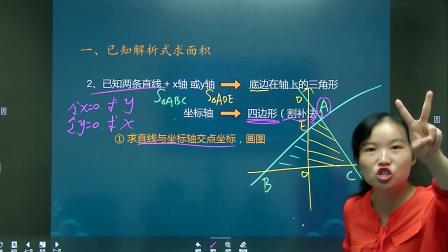 一、已知解析式求面积
2、已知两条直线 + x轴 或y轴 → 底边在轴上的三角形
S△ABC S△ADE
令x=0. 求y
坐标轴 → 四边形（割补法）
令y=0. 求x
① 求直线与坐标轴交点坐标，画图
D
A
E
B
O
C